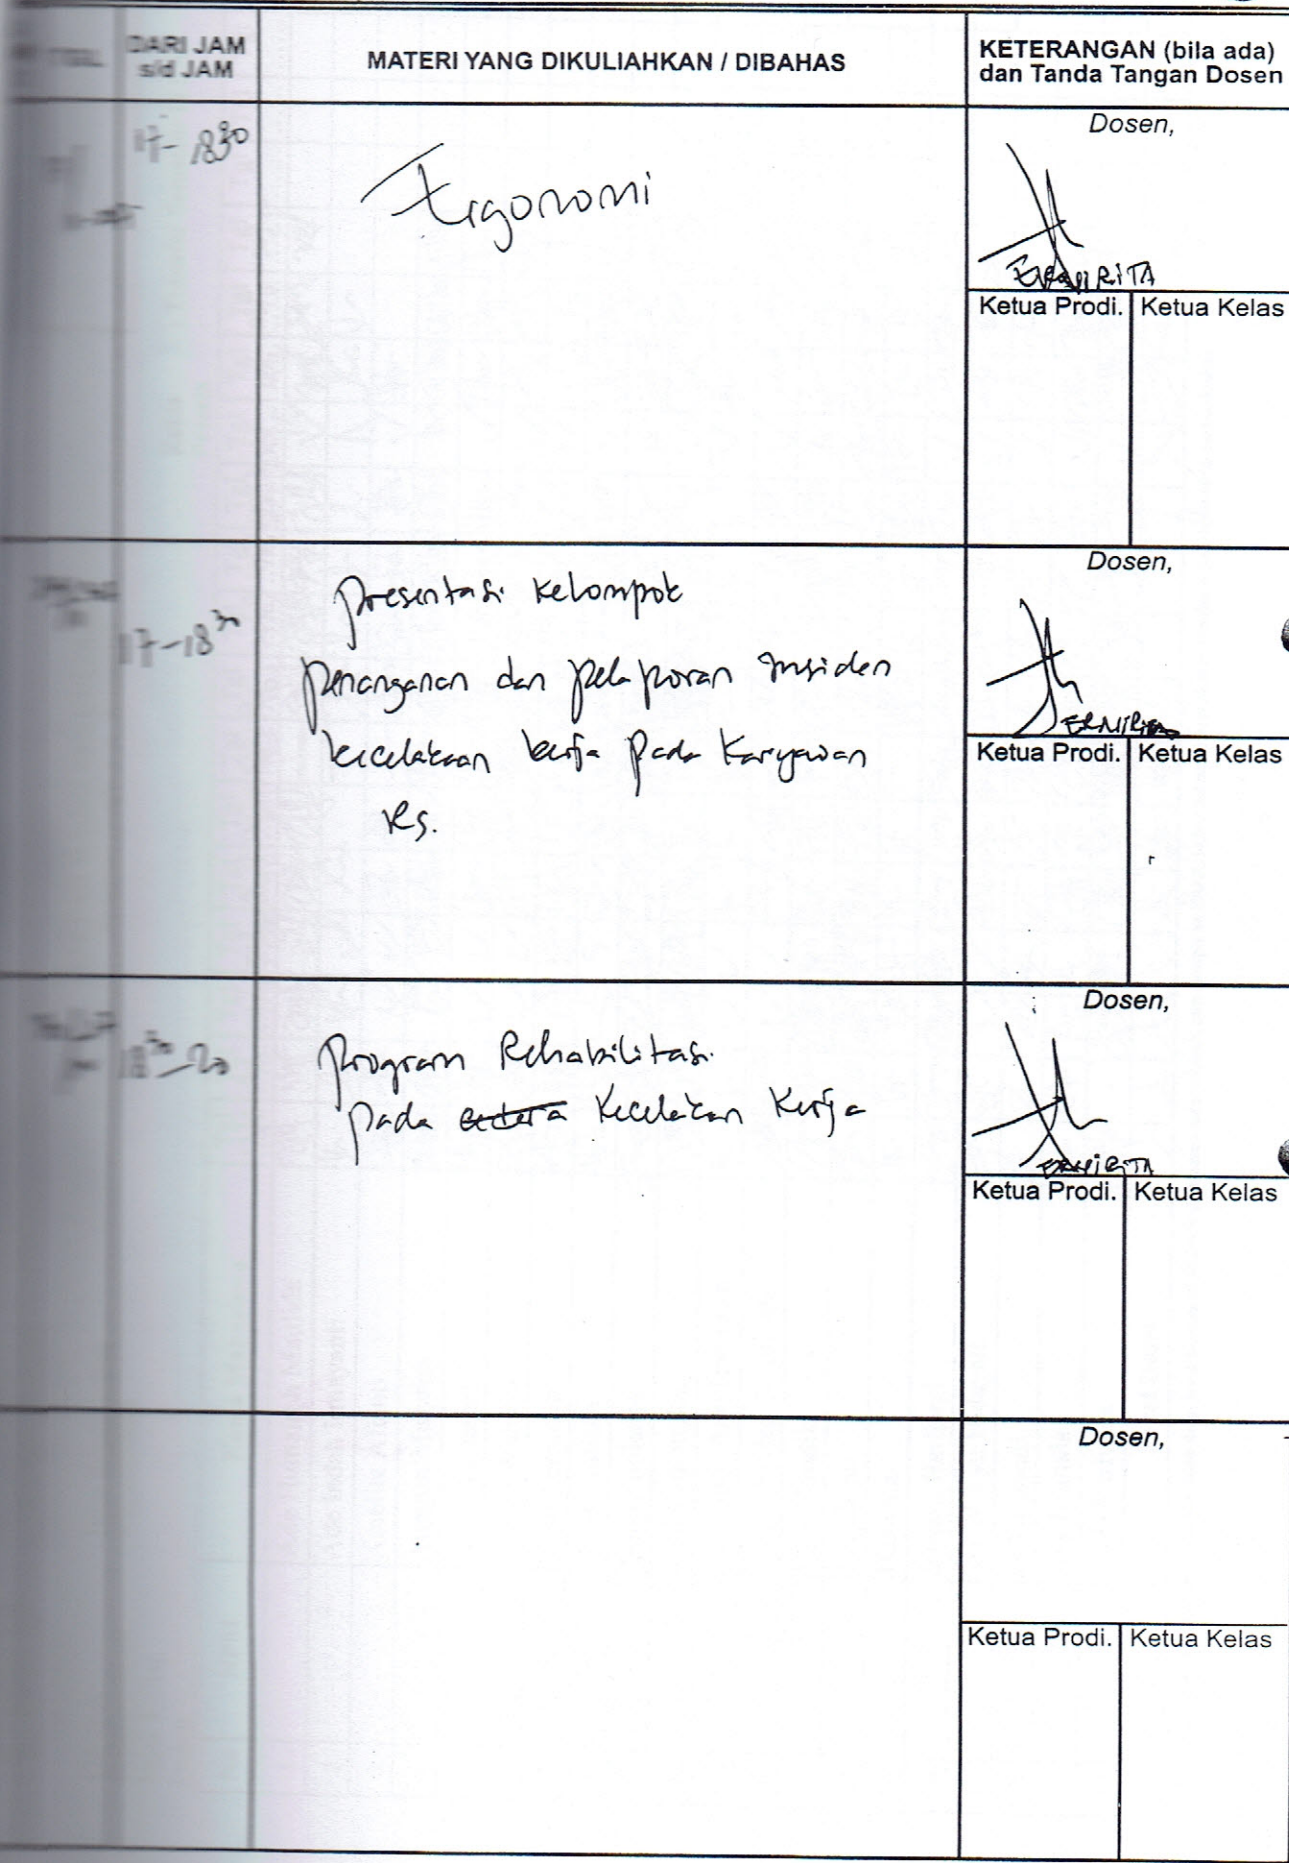 TGL
DARI JAM
s/d JAM
MATERI YANG DIKULIAHKAN / DIBAHAS
KETERANGAN (bila ada)
dan Tanda Tangan Dosen
17 - 18³⁰
Ergonomi
Dosen,
ERNIRITA
Ketua Prodi.
Ketua Kelas
17 - 18³⁰
presentasi kelompok
penanganan dan pelaporan insiden
kecelakaan kerja pada karyawan
RS.
Dosen,
ERNIRITA
Ketua Prodi.
Ketua Kelas
18³⁰ - 20
program Rehabilitasi
pada Kecelakan Kerja
Dosen,
ERNIRITA
Ketua Prodi.
Ketua Kelas
Dosen,
Ketua Prodi.
Ketua Kelas